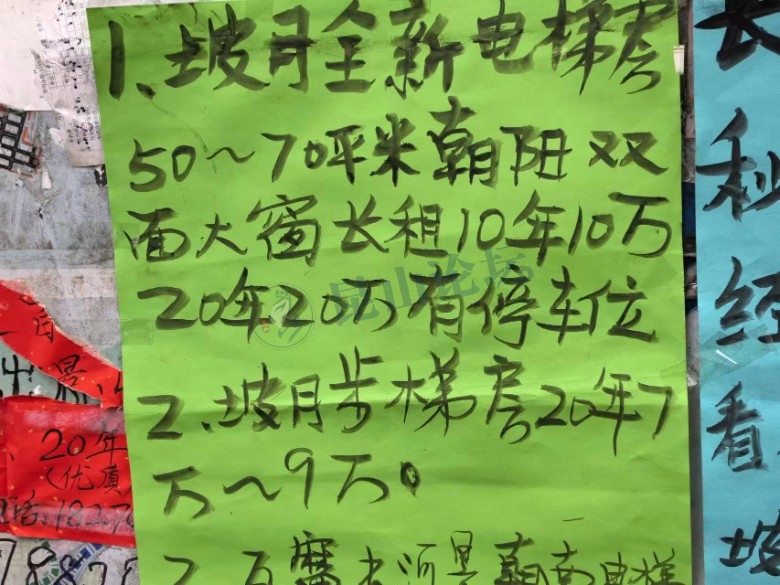 1、坡月全新电梯房
50～70坪米朝阳双
面大窗长租10年10万
20年20万有停车位
2、坡月步梯房20年7
万～9万。
河景朝南电梯
20年
(优质
长
秒
经
看
坡
昆山论坛